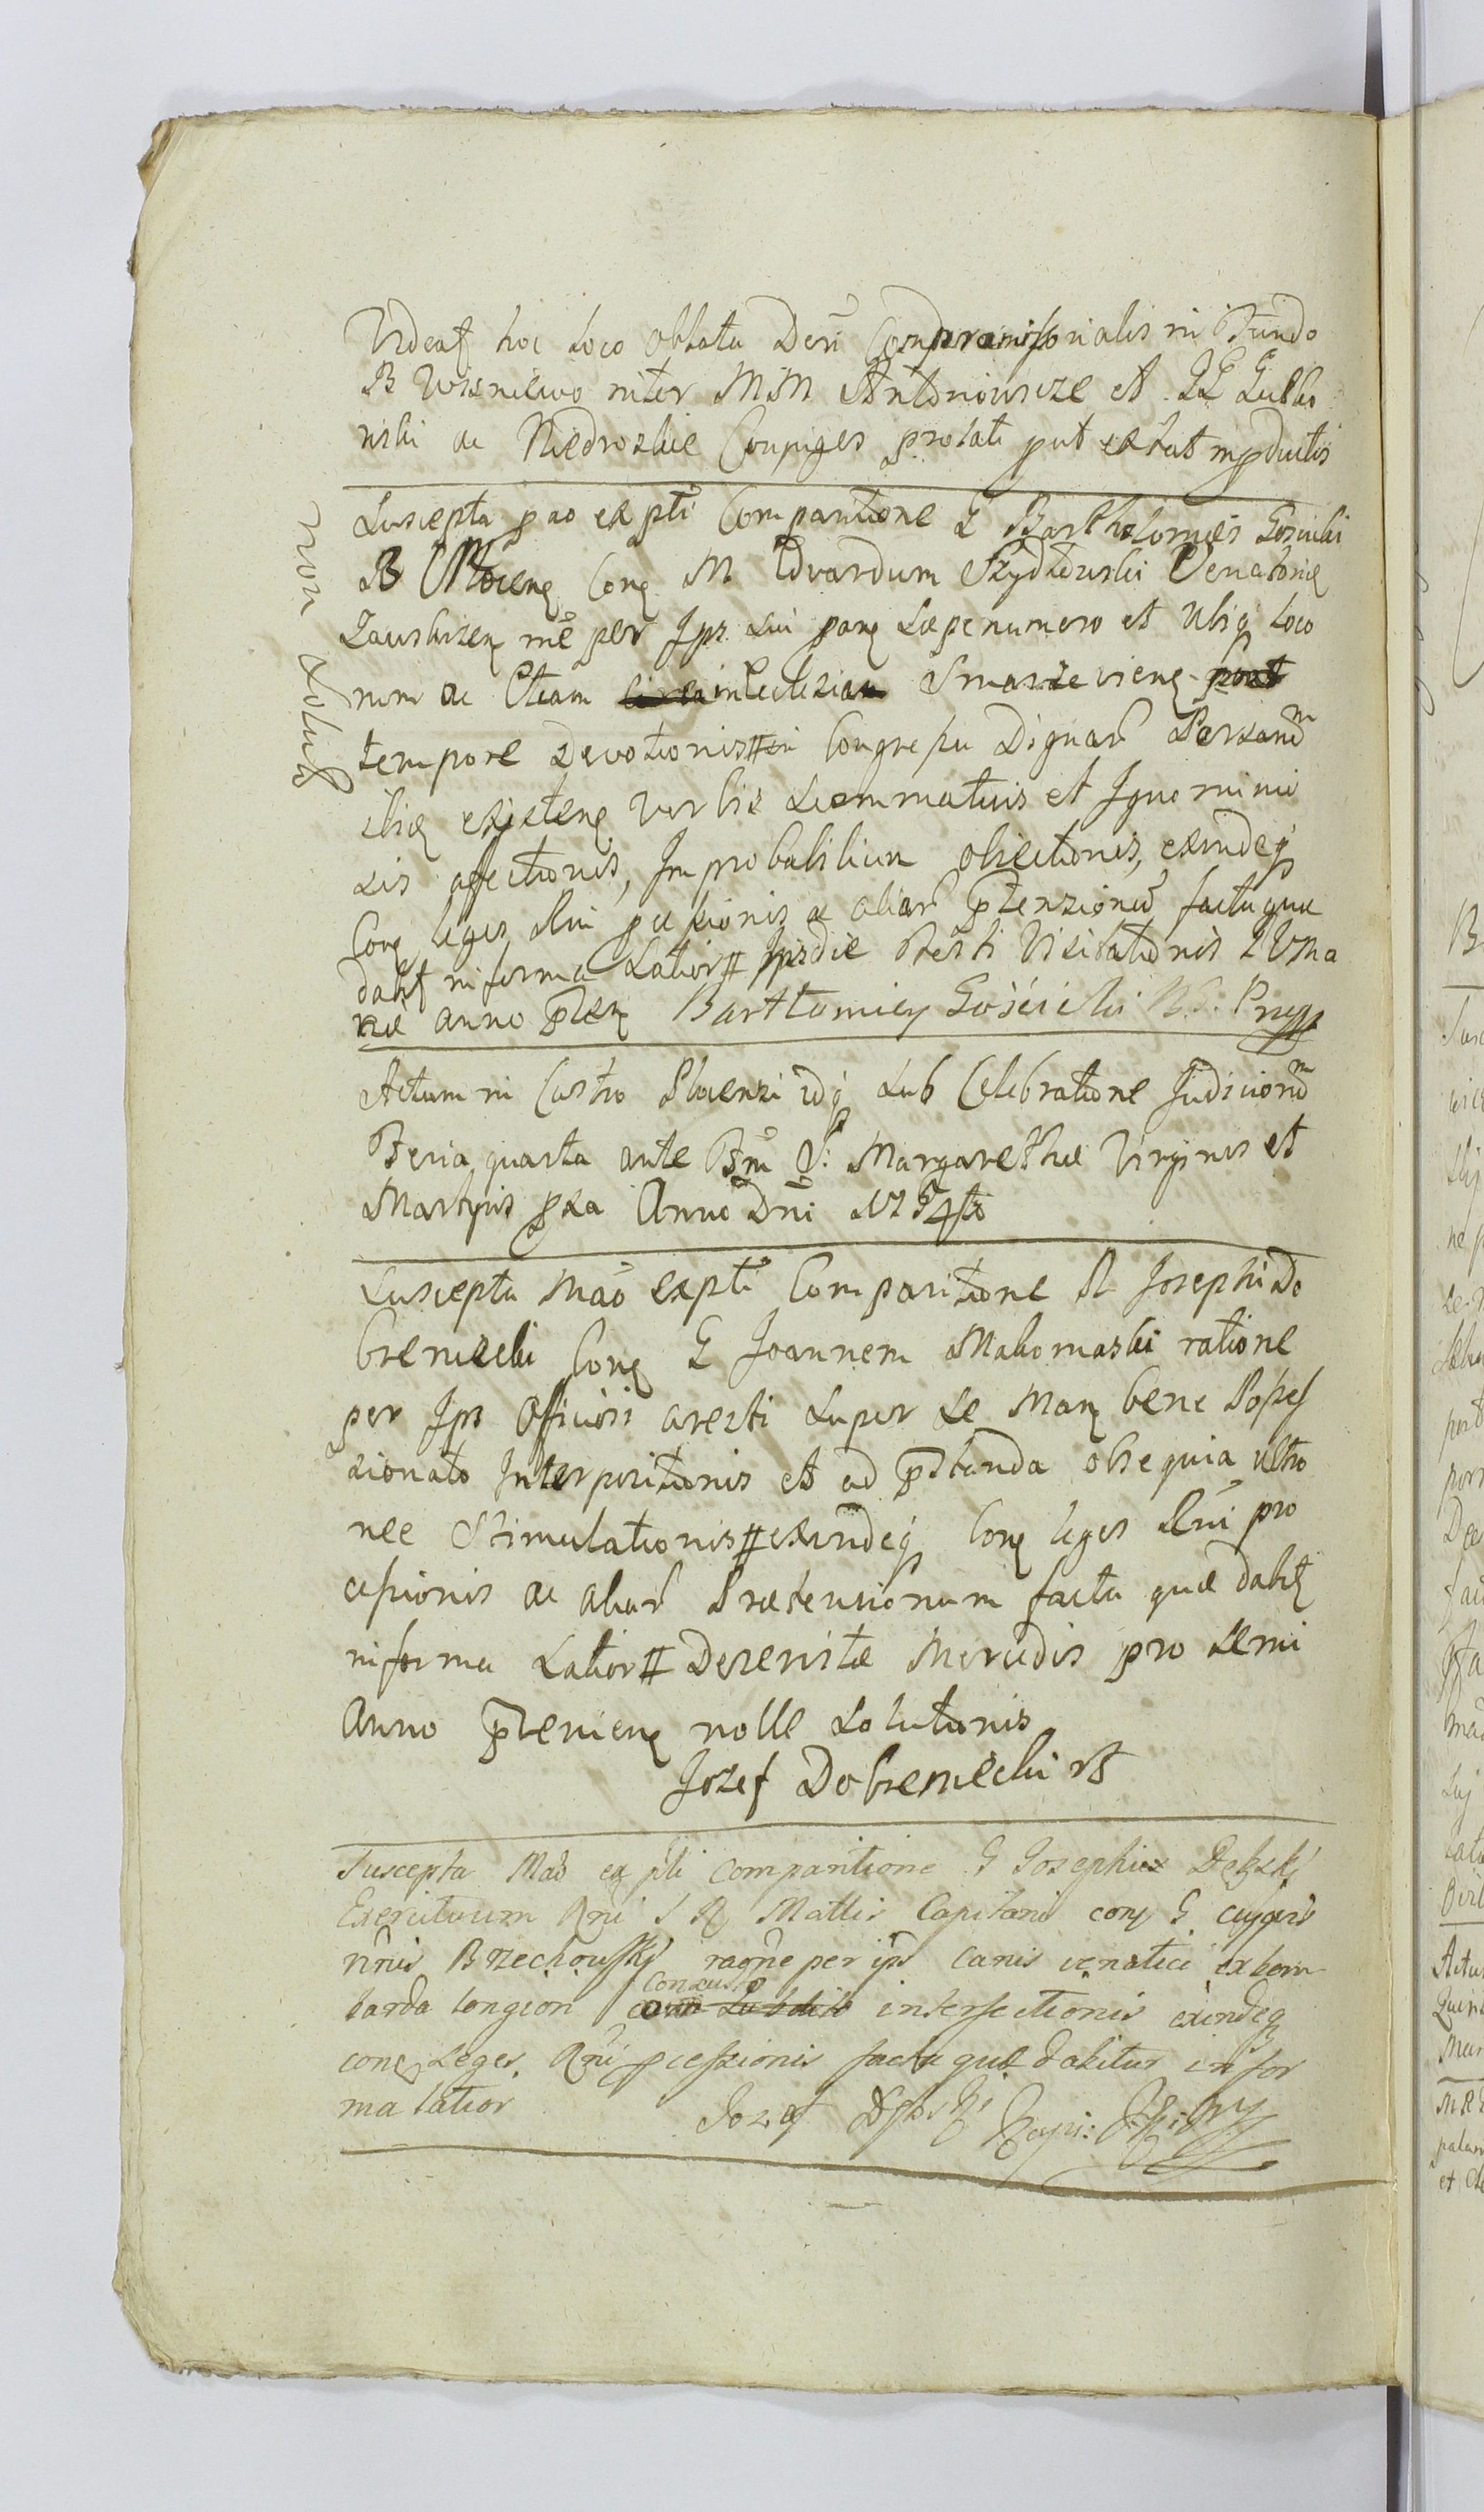 Videat hoc loco oblata Decri Compromissorialis in Fundo
B Wisniewo inter MM Antoniowicze et GG Gulbi
nski ac Niedroskie Conjuges prolati put extat inpductis
Suscepta pao ex pti Comparitione G Bartholomei Goscicki
B Ploceng Cong M Edvardum Szydłowski Venatorie
Zawskrzeng me per Ips sui pang saepenumero et ubiq loco
rum ac Etiam in Ecclesiam Smarzevieng
tempore devotionis # in Congressu Dignar Personar
ibiq existeng verbis scommaticis et Ignominio
sis affectionis, Improbabilium obiectionis, exindeq
Cong leges Rni pcessionis ac aliar ptensionu facta quae
dabit in forma Latior # Ipsdie Festi Visitationis B V Ma
riae anno pteng Bartłomiey Gościcki
Actum in Castro Plocensi idq sub Celebratione Judiciorum
Feria quarta ante Fm S: Margarethae Virginis et
Martyris pxa Anno Dni 1754to
Suscepta Mao expti Comparitione R Josephi Do
breniecki Cong G Joannem Makomaski ratione
per Ips Officiosi aresti super se Mang bene Posses
sionato Interpositionis et ad pstanda obsequia ultro
nee Stimulationis # exindeq Cong leges Rni pro
cessionis ac aliar Praetensionum facta quae dabit
informa Latior # Deservitae Mercedis pro semi
anno ptenieng nolle solutionis
Jozef Dobreniecki
Suscepta Mao ex pti comparitione G Josephi Dębski
Exercituum Rni S R Mattis Capitanei cong G cujusvis
nnis Brzechowski raone per ips canis venatici ex bom
barda longiori Concusso intersectionis exindeq
cong Leges Rni pcessionis facta quae dabitur in for
ma latior Jozef Dębski Kapi:
non soluit